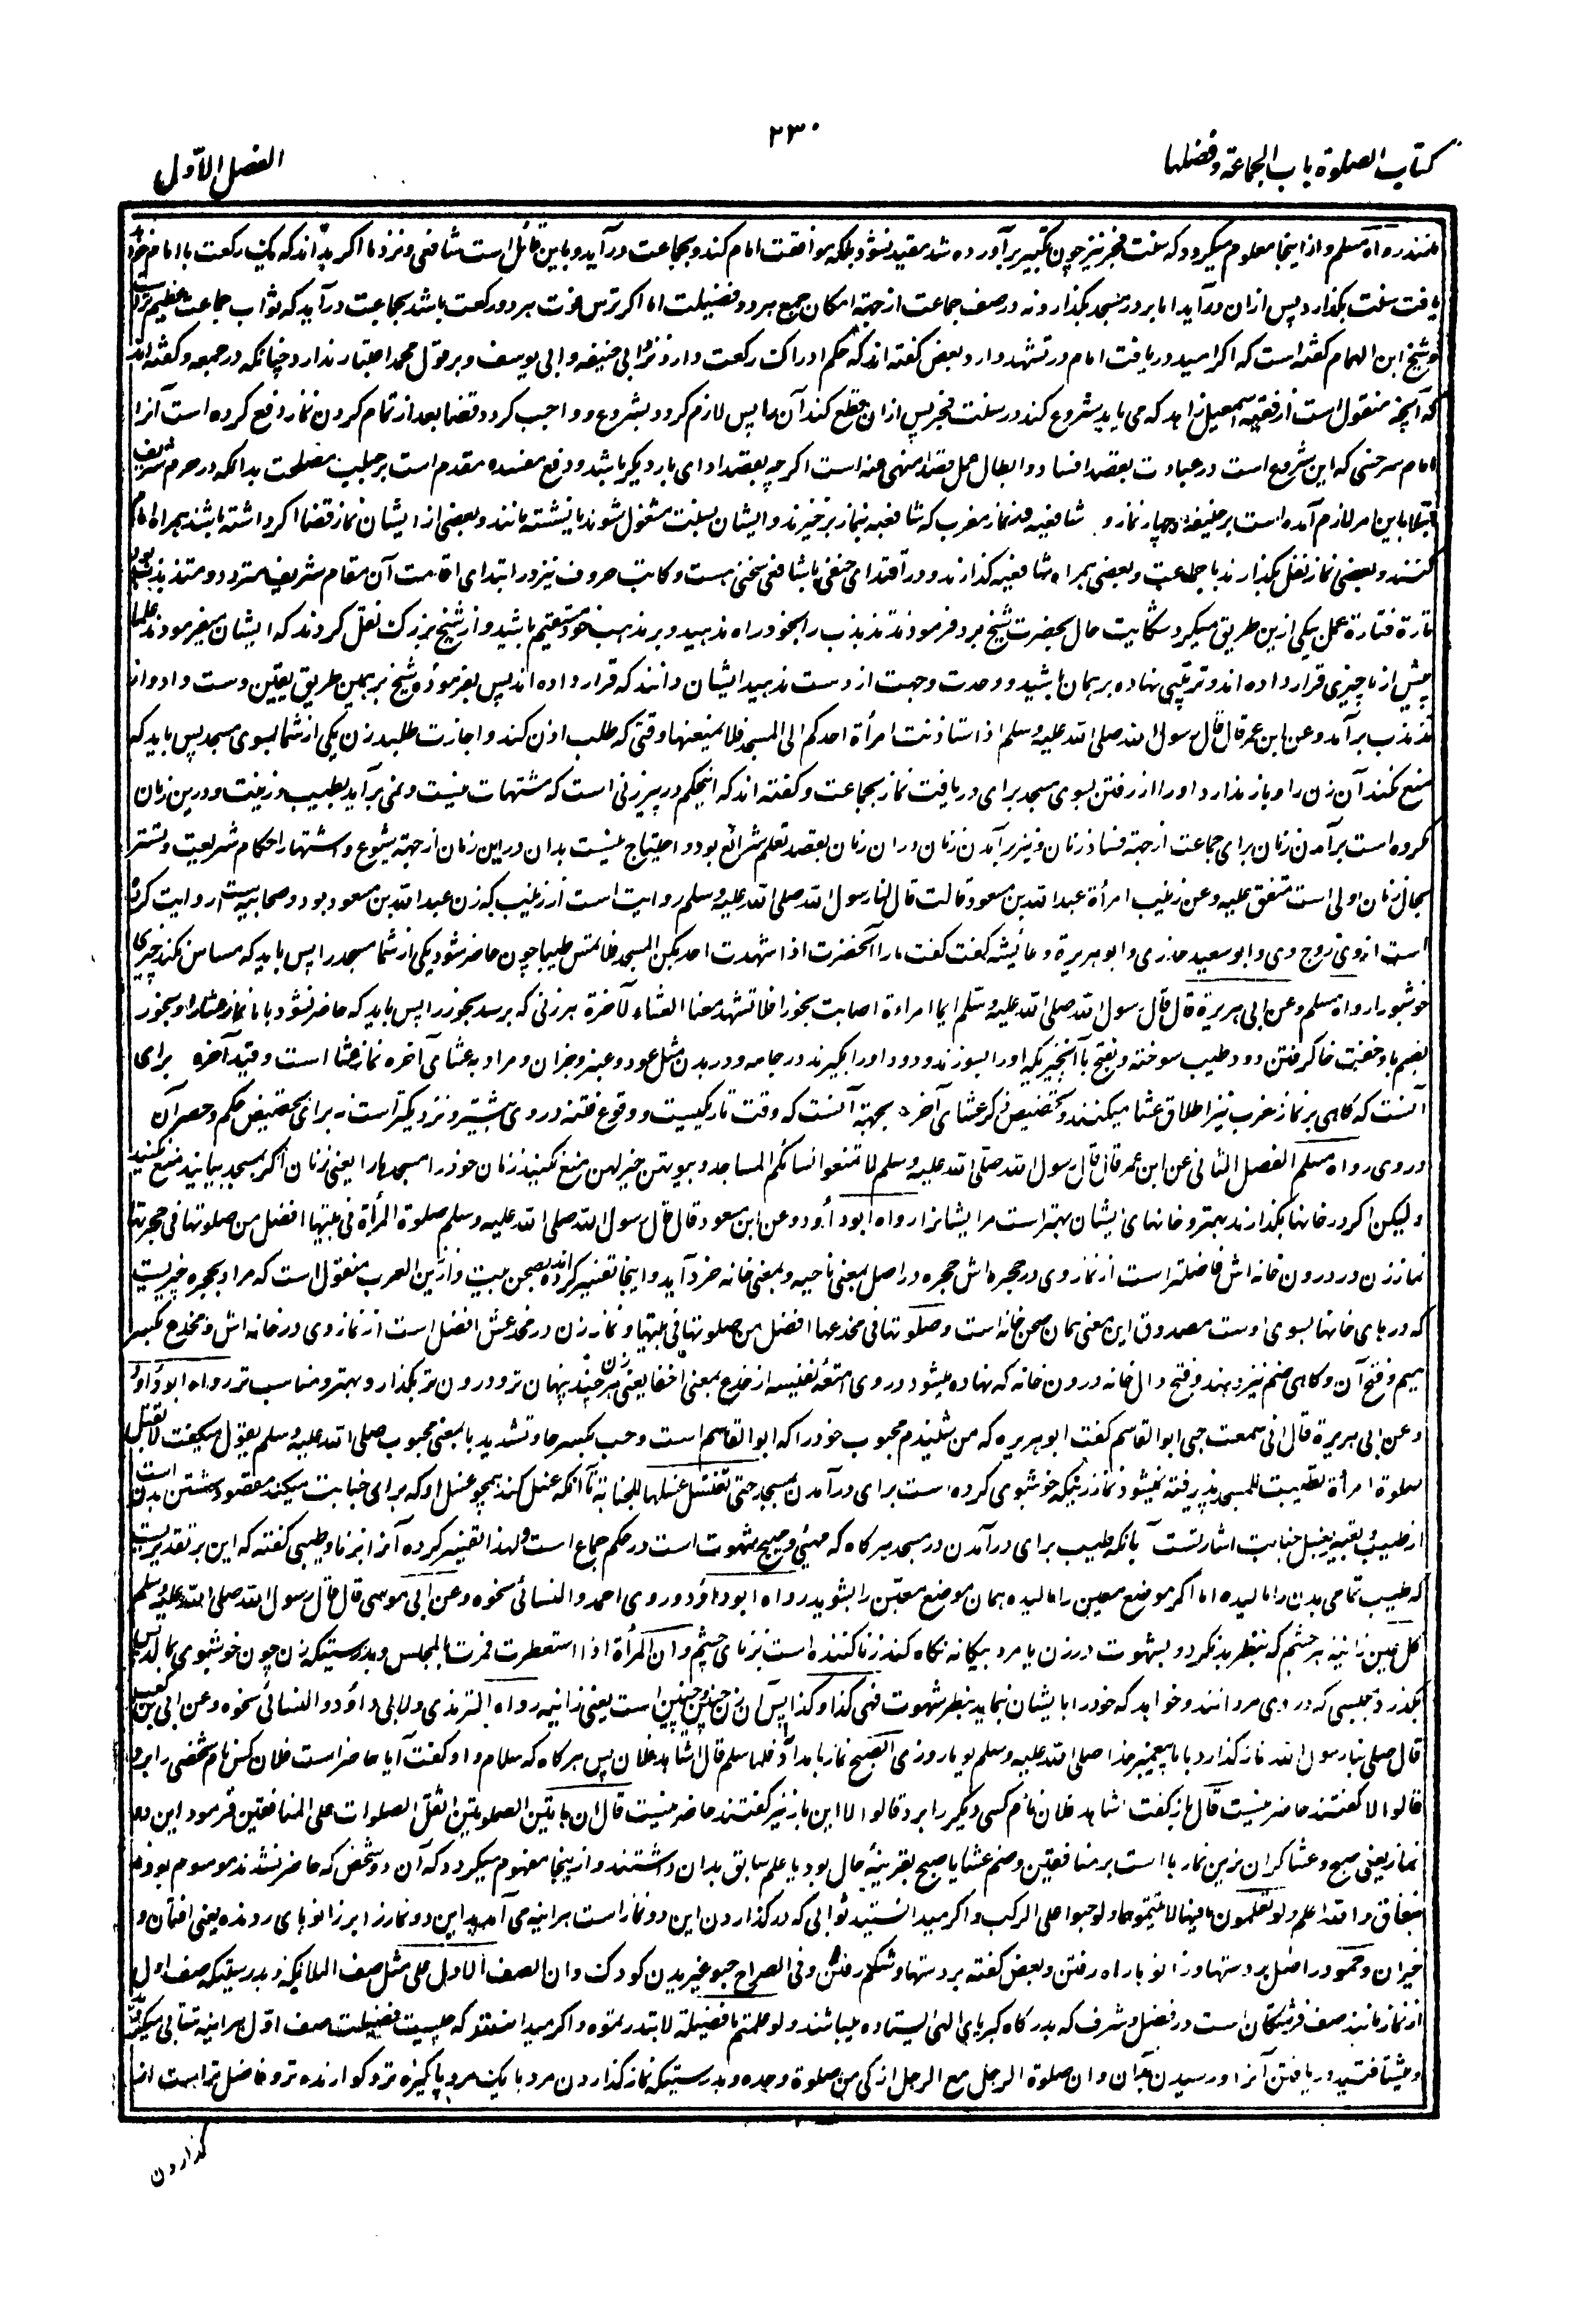 ۲۳۰
کتاب الصلوة باب الجماعة وفضلها
الفصل الاول
کنند رواه مسلم و از اینجا معلوم میگردد که سنت فجر نیز چون تکبیر برآورده شد مقید نشود بلکه موافقت امام کند و بجماعت درآید و باین قائل است شافعی و نزد ما اگر بداند که یک رکعت با امام خواهد
یافت سنت بگذارد پس ازان درآید اما بر در مسجد بگذارد نه در صف جماعت از جهة امکان جمع هر دو فضیلت اما اگر ترس فوت هر دو رکعت باشد بجماعت درآید که ثواب جماعت عظیم تر است
و شیخ ابن الهمام گفته است که اگر امید دریافت امام در تشهد دارد بعض گفته اند که حکم ادراک رکعت دارد نزد ابی حنیفه و ابی یوسف و بر قول محمد اعتبار ندارد چنانکه در جمعه و گفته اند
که آنچه منقول است از فقیه اسمعیل زاهد که می باید شروع کند در سنت فجر پس ازان قطع کند آن را پس لازم گردد بشروع و واجب گردد قضا بعد از تمام کردن نماز دفع کرده است آنرا
امام سرخسی که این شروع است در عبادت بقصد افساد و ابطال عمل قصدا منهی عنه است اگرچه بقصد ادای بار دیگر باشد و دفع مفسده مقدم است بر جلب مصلحت بدانکه در حرم شریف
ابتلا باین امر لازم آمده است بر حنیفه در چهار نماز و شافعیه در نماز مغرب که شافعیه بنماز برخیزند و ایشان بسنت مشغول شوند یا نشسته مانند و بعضی از ایشان نماز قضا اگر داشته باشند همراه امام
کنند و بعضی نماز نفل بگذارند با جماعت و بعضی همراه شافعیه گذارند و در اقتدای حنفی با شافعی سخنی هست و کاتب حروف نیز در ابتدای اقامت آن مقام شریف متردد و متذبذب بود
تارة فتارة عمل بیکی ازین طریق میکرد شکایت حال بحضرت شیخ برد فرمودند تذبذب را بخود راه ندهید و بر مذهب خود مستقیم باشید و از شیخ بزرگ نقل کردند که ایشان میفرمودند علما
پیش از ما چیزی قرار داده اند و ترتیبی نهاده بر همان باشید و وحدت وجهت از دست ندهید ایشان دانند که قرار داده اند پس بفرموده شیخ بر همین طریق یقین دست داد و از
تذبذب برآمد و عن ابن عمر قال قال رسول الله صلی الله علیه وسلم اذا استاذنت امرأة احدکم الی المسجد فلا یمنعنها وقتی که طلب اذن کند و اجازت طلبد زن یکی از شما بسوی مسجد پس باید که
منع نکند آن زن را و باز ندارد او را از رفتن بسوی مسجد برای دریافت نماز بجماعت و گفته اند که اینحکم در پیرزنی است که مشتهات نیست و نمی برآید بطیب و زینت و درین زمان
مکروه است برآمدن زنان برای جماعت از جهة فساد زنان و نیز برآمدن زنان دران زمان بقصد تعلم شرائع بود و احتیاج نیست بدان در این زمان از جهة شیوع و اشتهار احکام شریعت و تستر
بحال زنان اولی است متفق علیه و عن زینب امرأة عبد الله بن مسعود قالت قال لنا رسول الله صلی الله علیه وسلم روایت است از زینب که زن عبد الله بن مسعود بود و صحابیه است روایت کرده
است از وی زوج وی و ابو سعید خدری و ابو هریرة و عائشه گفت گفت ما را آنحضرت اذا شهدت احدیکن المسجد فلا تمس طیبا چون حاضر شود یکی از شما مسجد را پس باید که مساس نکند چیزی
خوشبو را رواه مسلم و عن ابی هریرة قال قال رسول الله صلی الله علیه وسلم ایما امراءة اصابت بخورا فلا تشهد معنا العشاء الآخرة هر زنی که برسد بخور را پس باید که حاضر نشود با ما نماز عشا را و بخور
بضم با وخفت خا گرفتن دود طیب سوخته و بفتح با آنچیزیکه او را بسوزند و دود او را بگیرند در جامه و در بدن مثل عود و عنبر و جزان و مراد بعشای آخره نماز عشا است و قید آخره برای
آنست که گاهی بر نماز مغرب نیز اطلاق عشا میکنند و تخصیص ذکر عشای آخره بجهة آنست که وقت تاریکیست و وقوع فتنه در وی بیشتر و نزدیکتر است نه برای تخصیص حکم و حصر آن
در وی رواه مسلم الفصل الثانی عن ابن عمر قال قال رسول الله صلی الله علیه وسلم لا تمنعوا نسائکم المساجد و بیوتهن خیر لهن منع نکنید زنان خود را مسجدها را یعنی زنان اگر بمسجد بیایند منع نکنید
و لیکن اگر در خانها بگذارند بهتر و خانهای ایشان بهتر است مر ایشانرا رواه ابو داود و عن ابن مسعود قال قال رسول الله صلی الله علیه وسلم صلوة المرأة فی بیتها افضل من صلوتها فی حجرتها
نماز زن در درون خانه اش فاضلتر است از نماز وی در حجره اش حجره در اصل بمعنی ناحیه و بمعنی خانه خرد آید و اینجا تفسیر کرده اند بصحن بیت و از زین العرب منقول است که مراد بحجره چیزیست
که درهای خانها بسوی اوست مصدوق این معنی همان صحن خانه است و صلوتها فی مخدعها افضل من صلوتها فی بیتها و نماز زن در مخدعش افضل است از نماز وی در خانه اش و مخدع بکسر
میم و فتح آن و گاهی ضم نیز دهند و فتح دال خانه درون خانه که نهاده میشود در وی امتعه نفیسه از خدع بمعنی اخفا یعنی زن هر چند پنهان تر و درون تر بگذارد بهتر و مناسب تر رواه ابو داود
و عن ابی هریرة قال انی سمعت حبی ابو القاسم گفت ابو هریره که من شنیدم محبوب خود را که ابو القاسم است وحب بکسر حا و تشدید با بمعنی محبوب صلی الله علیه وسلم یقول میگفت لا تقبل
صلوة امرأة تطیبت للمسجد پذیرفته نمیشود نماز زنیکه خوشبوی کرده است برای درآمدن بمسجد حتی تغتسل غسلها للجنابة تا آنکه غسل کند همچو غسل او که برای جنابت میکند مقصود شستن بدن است
از طیب و تعبیر بغسل جنابت اشارتست بانکه طیب برای درآمدن در مسجد هرگاه که مهیج شهوت است در حکم جماع است و لهذا تفسیر کرده آنرا بزنا و طیبی گفته که این بر تقدیریست
که طیب تمامی بدن را مالیده اما اگر موضع معین را مالیده همان موضع معین را بشوید رواه ابو داود و روی احمد و النسائی نحوه و عن ابی موسی قال قال رسول الله صلی الله علیه وسلم
کل عین زانیة هر چشم که بنظر بد نگرد و بشهوت در زن یا مرد بیگانه نگاه کند زنا کننده است بزنای چشم و ان المرأة اذا استعطرت فمرت بالمجلس و بدرستیکه زن چون خوشبوی مالد پس
بگذرد بمجلسی که در وی مردانند و خواهد که خود را بایشان نماید بنظر شهوت فهی کذا و کذا پس آن زن چنین و چنین است یعنی زانیه رواه الترمذی و لابی داود و النسائی نحوه و عن ابی بن کعب
قال صلی بنا رسول الله نماز گذارد با ما پیغمبر خدا صلی الله علیه وسلم یوما روزی الصبح نماز بامداد فلما سلم قال اشاهد فلان پس هرگاه که سلام داد گفت آیا حاضر است فلان کس نام شخصی را برد
قالوا لا گفتند حاضر نیست قال باز گفت اشاهد فلان نام کسی دیگر را برد قالوا لا این بار نیز گفتند حاضر نیست قال ان هاتین الصلوتین اثقل الصلوات علی المنافقین فرمود این دو
نماز یعنی صبح و عشا گران ترین نماز ها است بر منافقین وضم عشا یا صبح بقرینه حال بود یا علم سابق بدان داشتند و از ینجا مفهوم میگردد که آن دو شخص که حاضر نشدند موسوم بودند
بنفاق و الله اعلم و لو تعلمون ما فیها لاتیتموها و لو حبوا علی الرکب و اگر میدانستید ثوابی که در گذاردن این دو نماز است هراینه می آمدید این دو نماز را بر زانو های رونده یعنی افتان و
خیزان و حبو در اصل بر دستها و زانو ها راه رفتن و بعض گفته بر دستها و شکم رفتن و فی الصراح حبو غیزیدن کودک و ان الصف الاول علی مثل صف الملائکة و بدرستیکه صف اول
از نماز مانند صف فرشتگان است در فضل و شرف که بدرگاه کبریای الهی ایستاده میباشند و لو علمتم ما فضیلته لابتدرتموه و اگر میدانستید که چیست فضیلت صف اول هراینه شتابی میکردید
و میشتافتید دریافتن آنرا و رسیدن بآن و ان صلوة الرجل مع الرجل ازکی من صلوة وحده و بدرستیکه نماز گذاردن مرد با یک مرد پاکیزه تر و گوارنده تر و فاضل تر است از
گذاردن